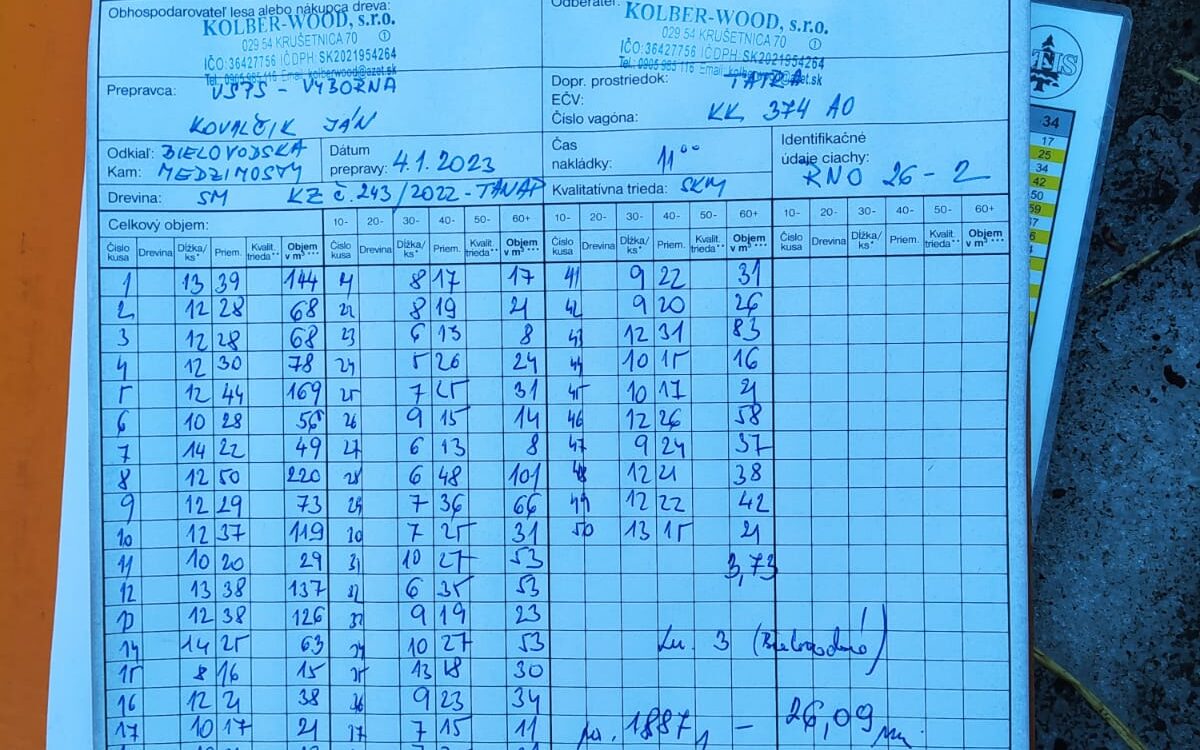 Obhospodarovateľ lesa alebo nákupca dreva:
KOLBER-WOOD, s.r.o.
029 54 KRUŠETNICA 70 ①
IČO:36427756 IČDPH:SK2021954264
Tel.: 0905 985 116 Email: kolberwood@azet.sk
Odberateľ:
KOLBER-WOOD, s.r.o.
029 54 KRUŠETNICA 70 ①
IČO:36427756 IČDPH:SK2021954264
Prepravca: VŠPS - VÝBORNÁ
KOVALČIK JÁN
Dopr. prostriedok: TATRA
EČV:
Číslo vagóna: KK 374 AO
Odkiaľ: BIELOVODSKÁ
Kam: MEDZIMOSTY
Dátum
prepravy: 4.1.2023
Čas
nakládky: 11⁰⁰
Identifikačné
údaje ciachy:
RNO 26 - 2
Drevina: SM KZ č. 243/2022 - TANAP
Kvalitatívna trieda: SKM
Celkový objem: 10- 20- 30- 40- 50- 60+ 10- 20- 30- 40- 50- 60+ 10- 20- 30- 40- 50- 60+
Číslo kusa Drevina Dĺžka/ks* Priem. Kvalit. trieda** Objem v m³*** Číslo kusa Drevina Dĺžka/ks* Priem. Kvalit. trieda** Objem v m³*** Číslo kusa Drevina Dĺžka/ks* Priem. Kvalit. trieda** Objem v m³*** Číslo kusa Drevina Dĺžka/ks* Priem. Kvalit. trieda** Objem v m³***
1 13 39 144 21 8 17 17 41 9 22 31
2 12 28 68 22 8 19 21 42 9 20 26
3 12 28 68 23 6 13 8 43 12 31 83
4 12 30 78 24 5 26 24 44 10 15 16
5 12 44 169 25 7 25 31 45 10 17 21
6 10 28 56 26 9 15 14 46 12 26 58
7 14 22 49 27 6 13 8 47 9 24 37
8 12 50 220 28 6 48 101 48 12 21 38
9 12 29 73 29 7 36 66 49 12 22 42
10 12 37 119 30 7 25 31 50 13 15 21
11 10 20 29 31 10 27 53
3,73
12 13 38 137 32 6 35 53
13 12 38 126 33 9 19 23
14 14 25 63 34 10 27 53
3
15 8 16 15 35 13 18 30
16 12 21 38 36 9 23 34
17 10 17 21 37 7 15 11
1887 - 26,09
34
17
25
34
42
50
59